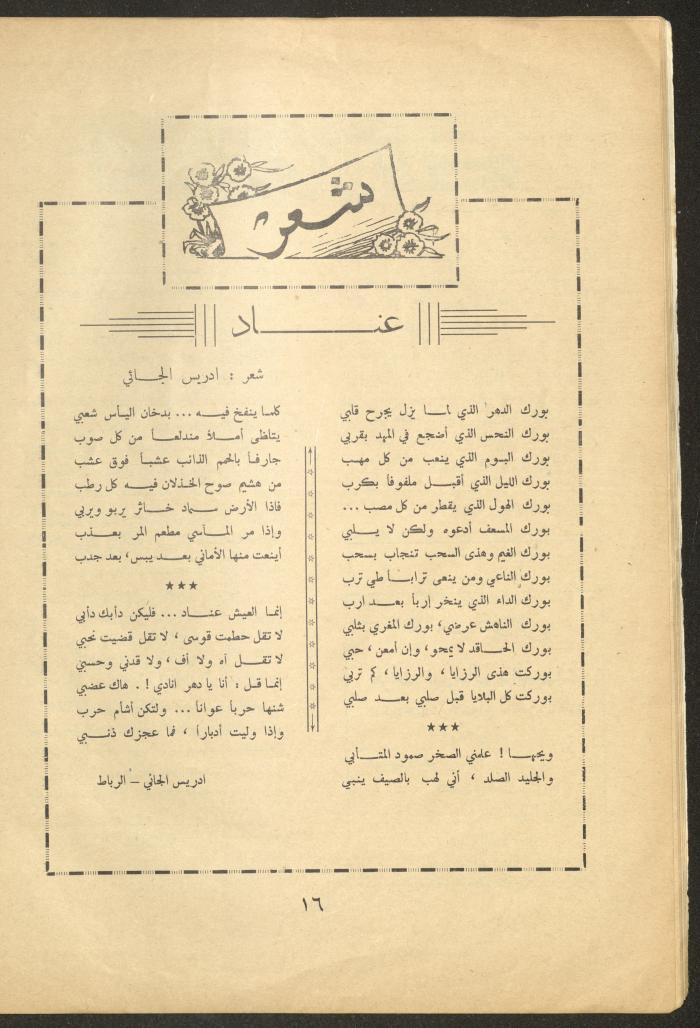 شعر
عناد
شعر : ادريس الجائي
بورك الدهر الذي لما يزل يجرح قلبي
بورك النحس الذي أضجع في المهد بقربي
بورك البوم الذي ينعب من كل مهب
بورك الليل الذي أقبل ملفوفاً بكرب
بورك الهول الذي يقطر من كل مصب ...
بورك المسعف أدعوه ولكن لا يلبي
بورك الغيم وهذى السحب تنجاب بسحب
بورك الناعي ومن ينعى تراباً طي ترب
بورك الداء الذي ينخر إرباً بعد ارب
بورك الناهش عرضي، بورك المغري بثلبي
بورك الحاقد لا يمحو، وإن أمعن، حبي
بوركت هذى الرزايا ، والرزايا، كم تربي
بوركت كل البلايا قبل صلبي بعد صلبي
★★★
ويحها ! علمني الصخر صمود المتأبي
والجليد الصلد ، أني لهب بالصيف ينبي
كلما ينفخ فيه ... بدخان اليأس شعبي
يتلظى أملاً مندلعاً من كل صوب
جارفاً بالحمم الذائب عشباً فوق عشب
من هشيم صوح الخذلان فيه كل رطب
فاذا الأرض سماد خاثر يربو ويربي
وإذا مر المآسي مطعم المر بعذب
أينعت منها الأماني بعد يبس، بعد جدب
★★★
إنما العيش عناد ... فليكن دأبك دأبي
لا تقل حطمت قوسى ، لا تقل قضيت نحبي
لا تقل آه ولا أف، ولا قدني وحسبي
إنما قل : أنا يا دهر انادي ! . هاك عضبي
شنها حرباً عواناً ... ولتكن أشأم حرب
وإذا وليت أدباراً ، فما عجزك ذنبي
ادريس الجائي – الرباط
١٦